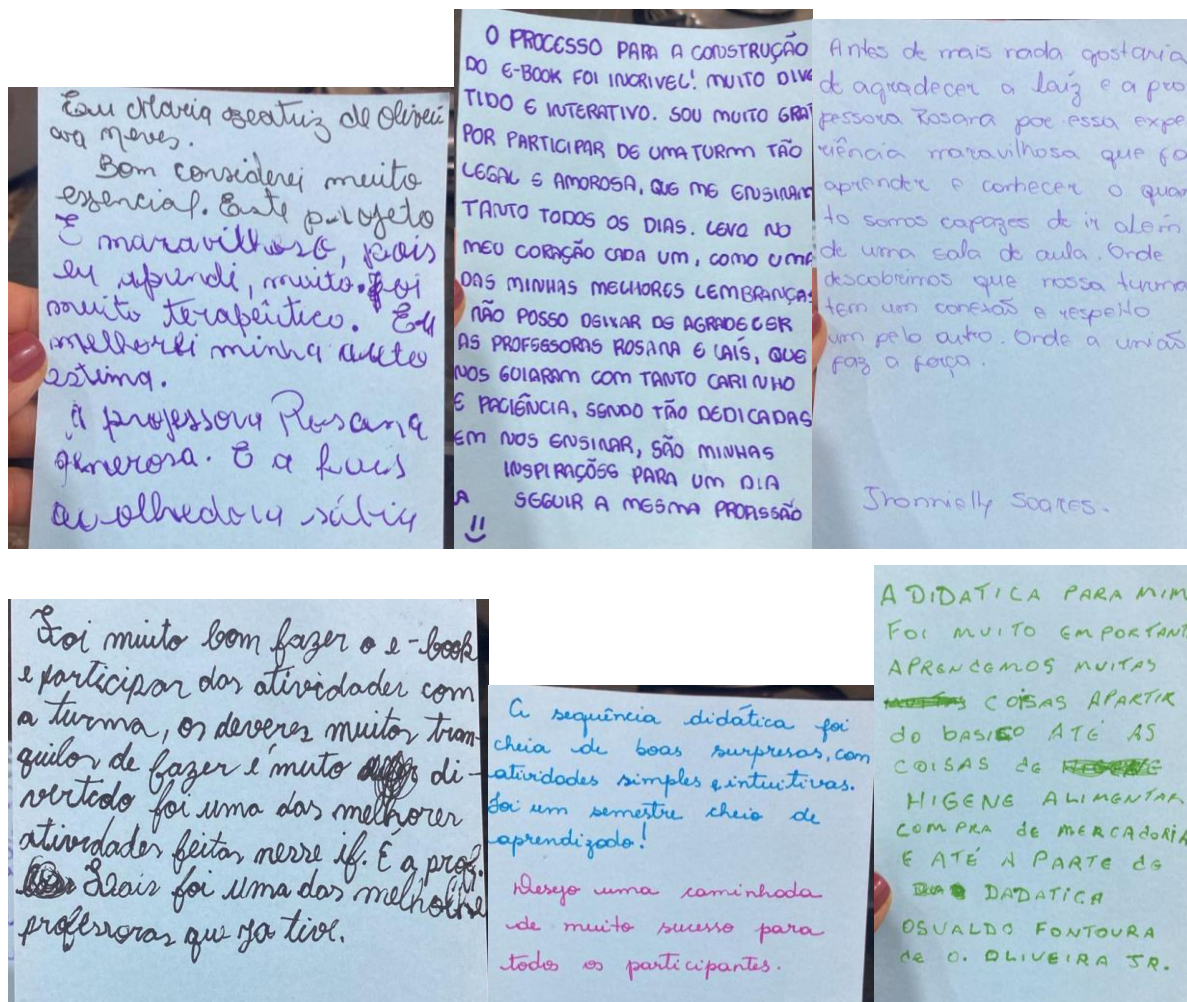 Eu Maria Beatriz de Olivei
ra Neves.
Bom considerei muito
essencial. Este projeto
E maravilhoso, pois
eu aprendi, muito. Foi
muito terapêutico. Eu
melhorei minha auto
estima.
A professora Rosana
generosa. E a
acolhedora sábia
O PROCESSO PARA A CONSTRUÇÃO
DO E-BOOK FOI INCRIVEL! MUITO DIVE
TIDO E INTERATIVO. SOU MUITO GRAT
POR PARTICIPAR DE UMA TURMA TÃO
LEGAL E AMOROSA, QUE ME ENSINAM
TANTO TODOS OS DIAS. LEVO NO
MEU CORAÇÃO CADA UM, COMO UMA
DAS MINHAS MELHORES LEMBRANÇAS
NÃO POSSO DEIXAR DE AGRADECER
AS PROFESSORAS ROSANA E LAÍS, QUE
NOS GUIARAM COM TANTO CARINHO
E PACIÊNCIA, SENDO TÃO DEDICADAS
EM NOS ENSINAR, SÃO MINHAS
INSPIRAÇÕES PARA UM DIA
A SEGUIR A MESMA PROFISSÃO
Antes de mais nada gostaria
de agradecer a laíz e a pro
fessora Rosara por essa expe
riência maravilhosa que fo
aprender e conhecer o quan
to somos capazes de ir além
de uma sala de aula. Onde
descobrimos que nossa turma
tem um conexão e respeito
um pelo outro. Onde a união
faz a força.
Jhonnielly Soares.
Foi muito bom fazer o e-book
e participar das atividades com
a turma, os deveres muitos tran-
quilos de fazer é muto di-
vertido foi uma das melhores
atividades feitas nesse if. E a prof.
Lais foi uma das melhores
professoras que ja tive.
A sequência didática foi
cheia de boas surpresas, com
atividades simples e intuitivas.
Foi um semestre cheio de
aprendizado!
Desejo uma caminhada
de muito sucesso para
todos os participantes.
A DIDATICA PARA MIM
FOI MUITO EMPORTANT
APRENDEMOS MUITAS
COISAS APARTIR
do BASICO ATÉ AS
COISAS de
HIGENE ALIMENTAR
COMPRA de MERCADORIA
E ATÉ A PARTE dE
DADATICA
OSVALDO FONTOURA
de O. OLIVEIRA JR.